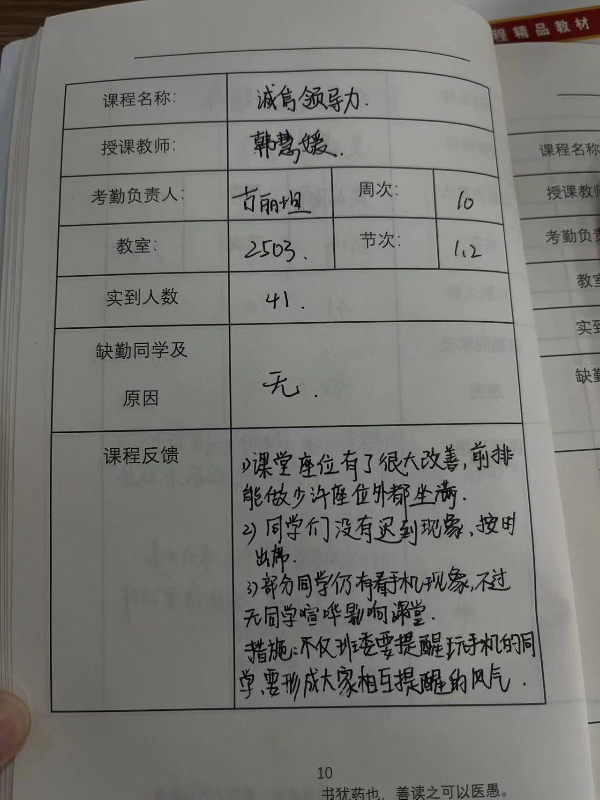 程精品教材
课程名称: 诚信领导力.
授课教师: 韩慧媛.
考勤负责人: 古丽坦 周次: 10
教室: 2503. 节次: 1,2
实到人数 41.
缺勤同学及
原因 无.
课程反馈
1)课堂座位有了很大改善,前排
能做少许座位外都坐满.
2) 同学们没有迟到现象,按时
出席.
3)部分同学仍有看手机现象,不过
无同学喧哗影响课堂.
措施:不仅班委要提醒玩手机的同
学,要形成大家相互提醒的风气.
10
书犹药也,善读之可以医愚。
课程名称
授课教师
考勤负责
教室
实到
缺勤